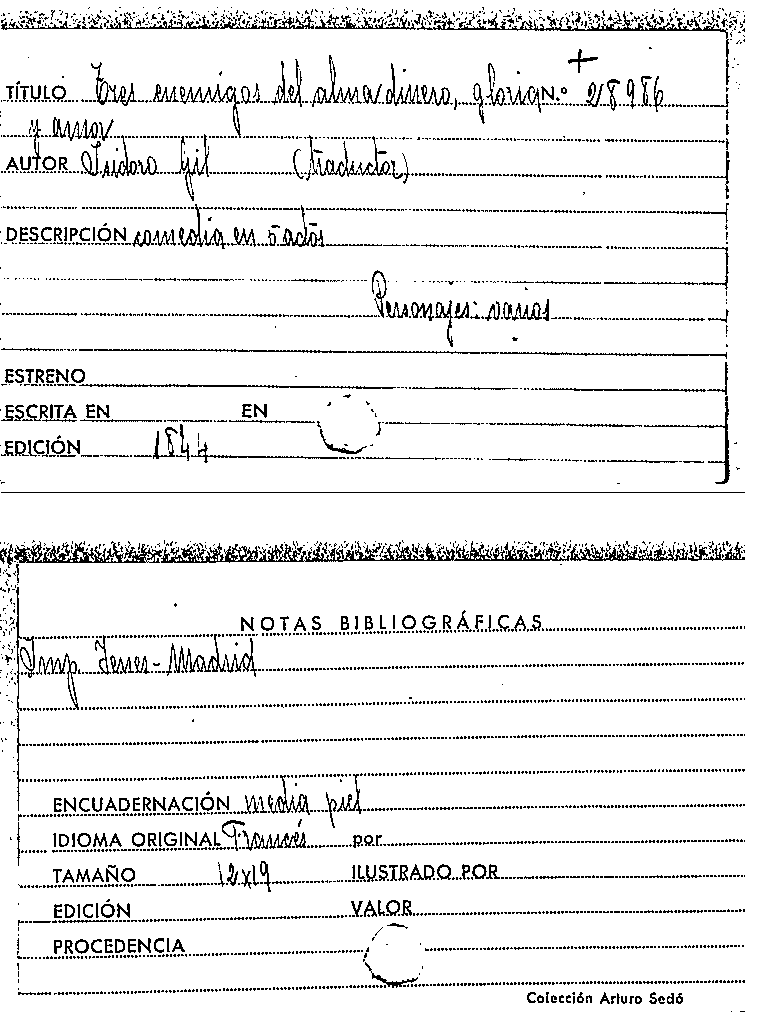 +
TÍTULO Tres enemigos del alma dinero, gloria N.º 28986
y amor
AUTOR Isidoro Gil (traductor)
DESCRIPCIÓN comedia en 5 actos
Personajes: varios
ESTRENO
ESCRITA EN EN
EDICIÓN 1844
NOTAS BIBLIOGRÁFICAS
Imp Yenes - Madrid
ENCUADERNACIÓN media piel
IDIOMA ORIGINAL Francés por
TAMAÑO 12x19 ILUSTRADO POR
EDICIÓN VALOR
PROCEDENCIA
Colección Arturo Sedó